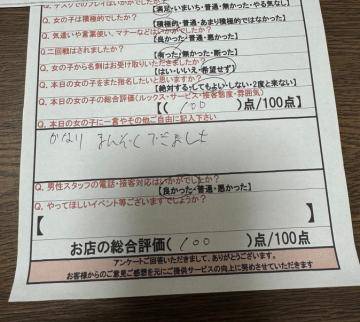 【満足・いまいち・普通・無かった・やる気なし】
Q. 女の子は積極的でしたか?
【積極的・普通・あまり積極的ではなかった】
Q. 気遣いや言葉使い、マナーなどはいかがでしたか?
【良かった・普通・悪かった】
Q. 二回戦はされましたか?
【有った・無かった・断った】
Q. 女の子から名刺はお受け取りいただきましたか?
【はい・いいえ・希望せず】
Q. 本日の女の子をまた指名したいと思いますか?
【絶対する・してもよい・しない・2度と来ない】
Q. 本日の女の子の総合評価(ルックス・サービス・接客態度・雰囲気)
【( 100 )点/100点】
Q. 本日の女の子に一言やその他ご自由に記入下さい
かなり まんぞくできました
Q. 男性スタッフの電話・接客対応はいかがでしたか?
【良かった・普通・悪かった】
Q. やってほしいイベント等ございますでしょうか?
【 】
お店の総合評価( 100 )点/100点
アンケートご回答いただきまして、ありがとうございます。
お客様からのご意見ご感想を元にご提供サービスの向上に努めさせていただきます